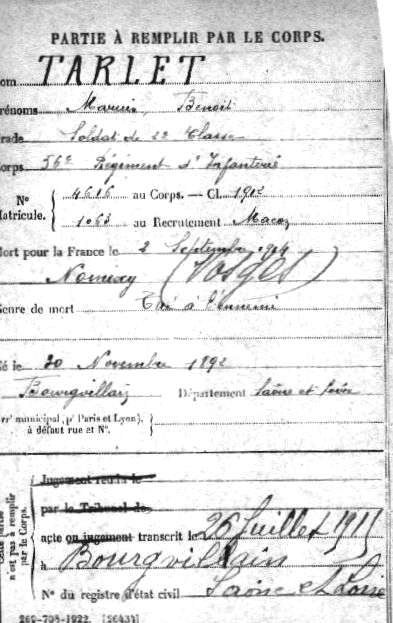 PARTIE À REMPLIR PAR LE CORPS.
om TARLET
rénoms Marius, Benoit
rade Soldat de 2e Classe
orps 56e Régiment d'Infanterie
N° 4616 au Corps. — Cl. 1912
atricule. 1063 au Recrutement Macon
ort pour la France le 2 Septembre 1914
Nomexy (Vosges)
enre de mort Tué à l'ennemi
é le 20 Novembre 1892
Bourgvillain Département Saône et Loire
rr' municipal (p' Paris et Lyon),
à défaut rue et N°.
Cette partie n'est pas à remplir par le Corps.
Jugement rendu le
par le Tribunal de
acte ou jugement transcrit le 26 Juillet 1915
à Bourgvillain
N° du registre d'état civil Saône et Loire
269-708-1922. [26434]